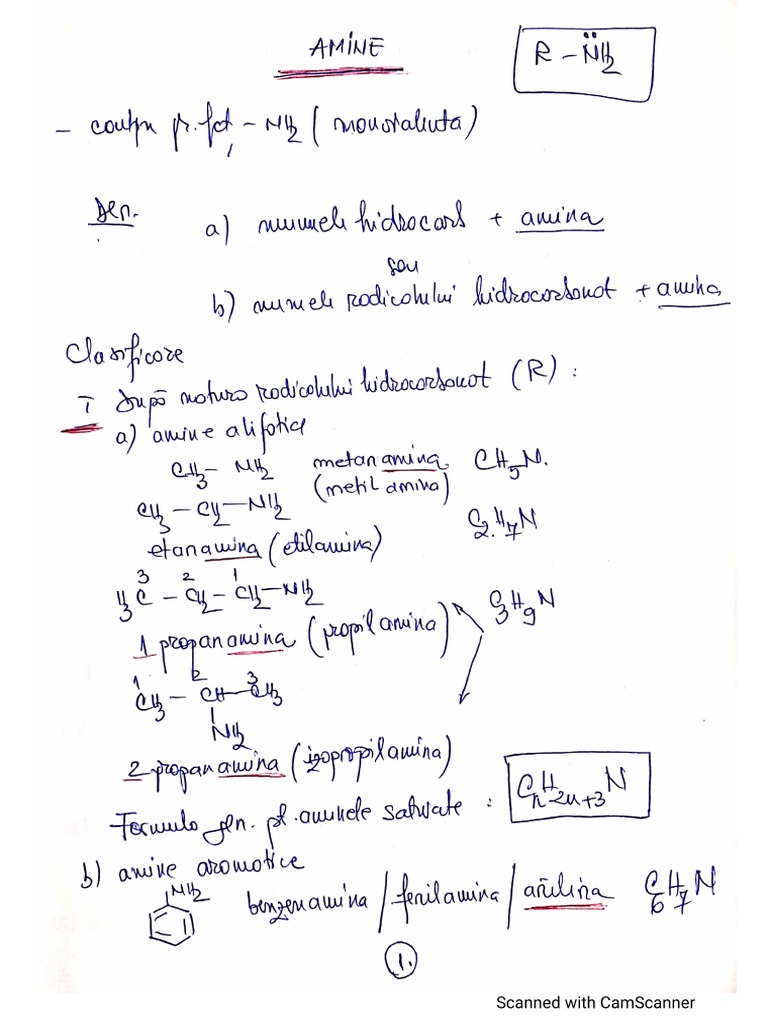 AMINE
R – N̈H2
– conțin gr. fcț – NH2 (monovalentă)
Den. a) numele hidrocarb + amina
sau
b) numele radicalului hidrocarbonat + amina
Clasificare
I După natura radicalului hidrocarbonat (R) :
a) amine alifatice
CH3 – NH2 metanamina CH5N.
(metil amina)
CH3 – CH2 – NH2 C2H7N
etanamina (etilamina)
3 2 1
H3C – CH2 – CH2 – NH2 C3H9N
1 propanamina (propilamina)
1 2 3
CH3 – CH – CH3
NH2
2 propanamina (izopropilamina)
Formula gen. pt. aminele saturate : CnH2n+3N
b) amine aromatice
NH2
benzenamina / fenilamina / anilina C6H7N
1.
Scanned with CamScanner